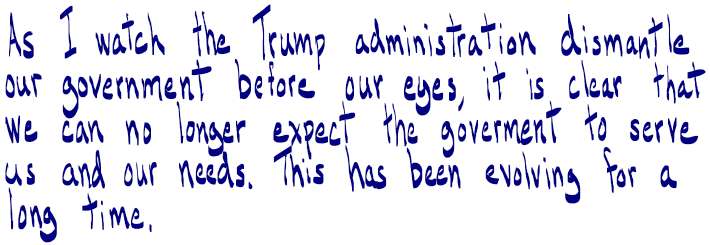 As I watch the Trump administration dismantle
our government before our eyes, it is clear that
we can no longer expect the goverment to serve
us and our needs. This has been evolving for a
long time.